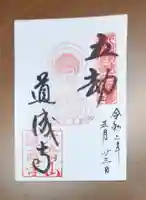 令和二年
五月廿三日
五劫
道成寺